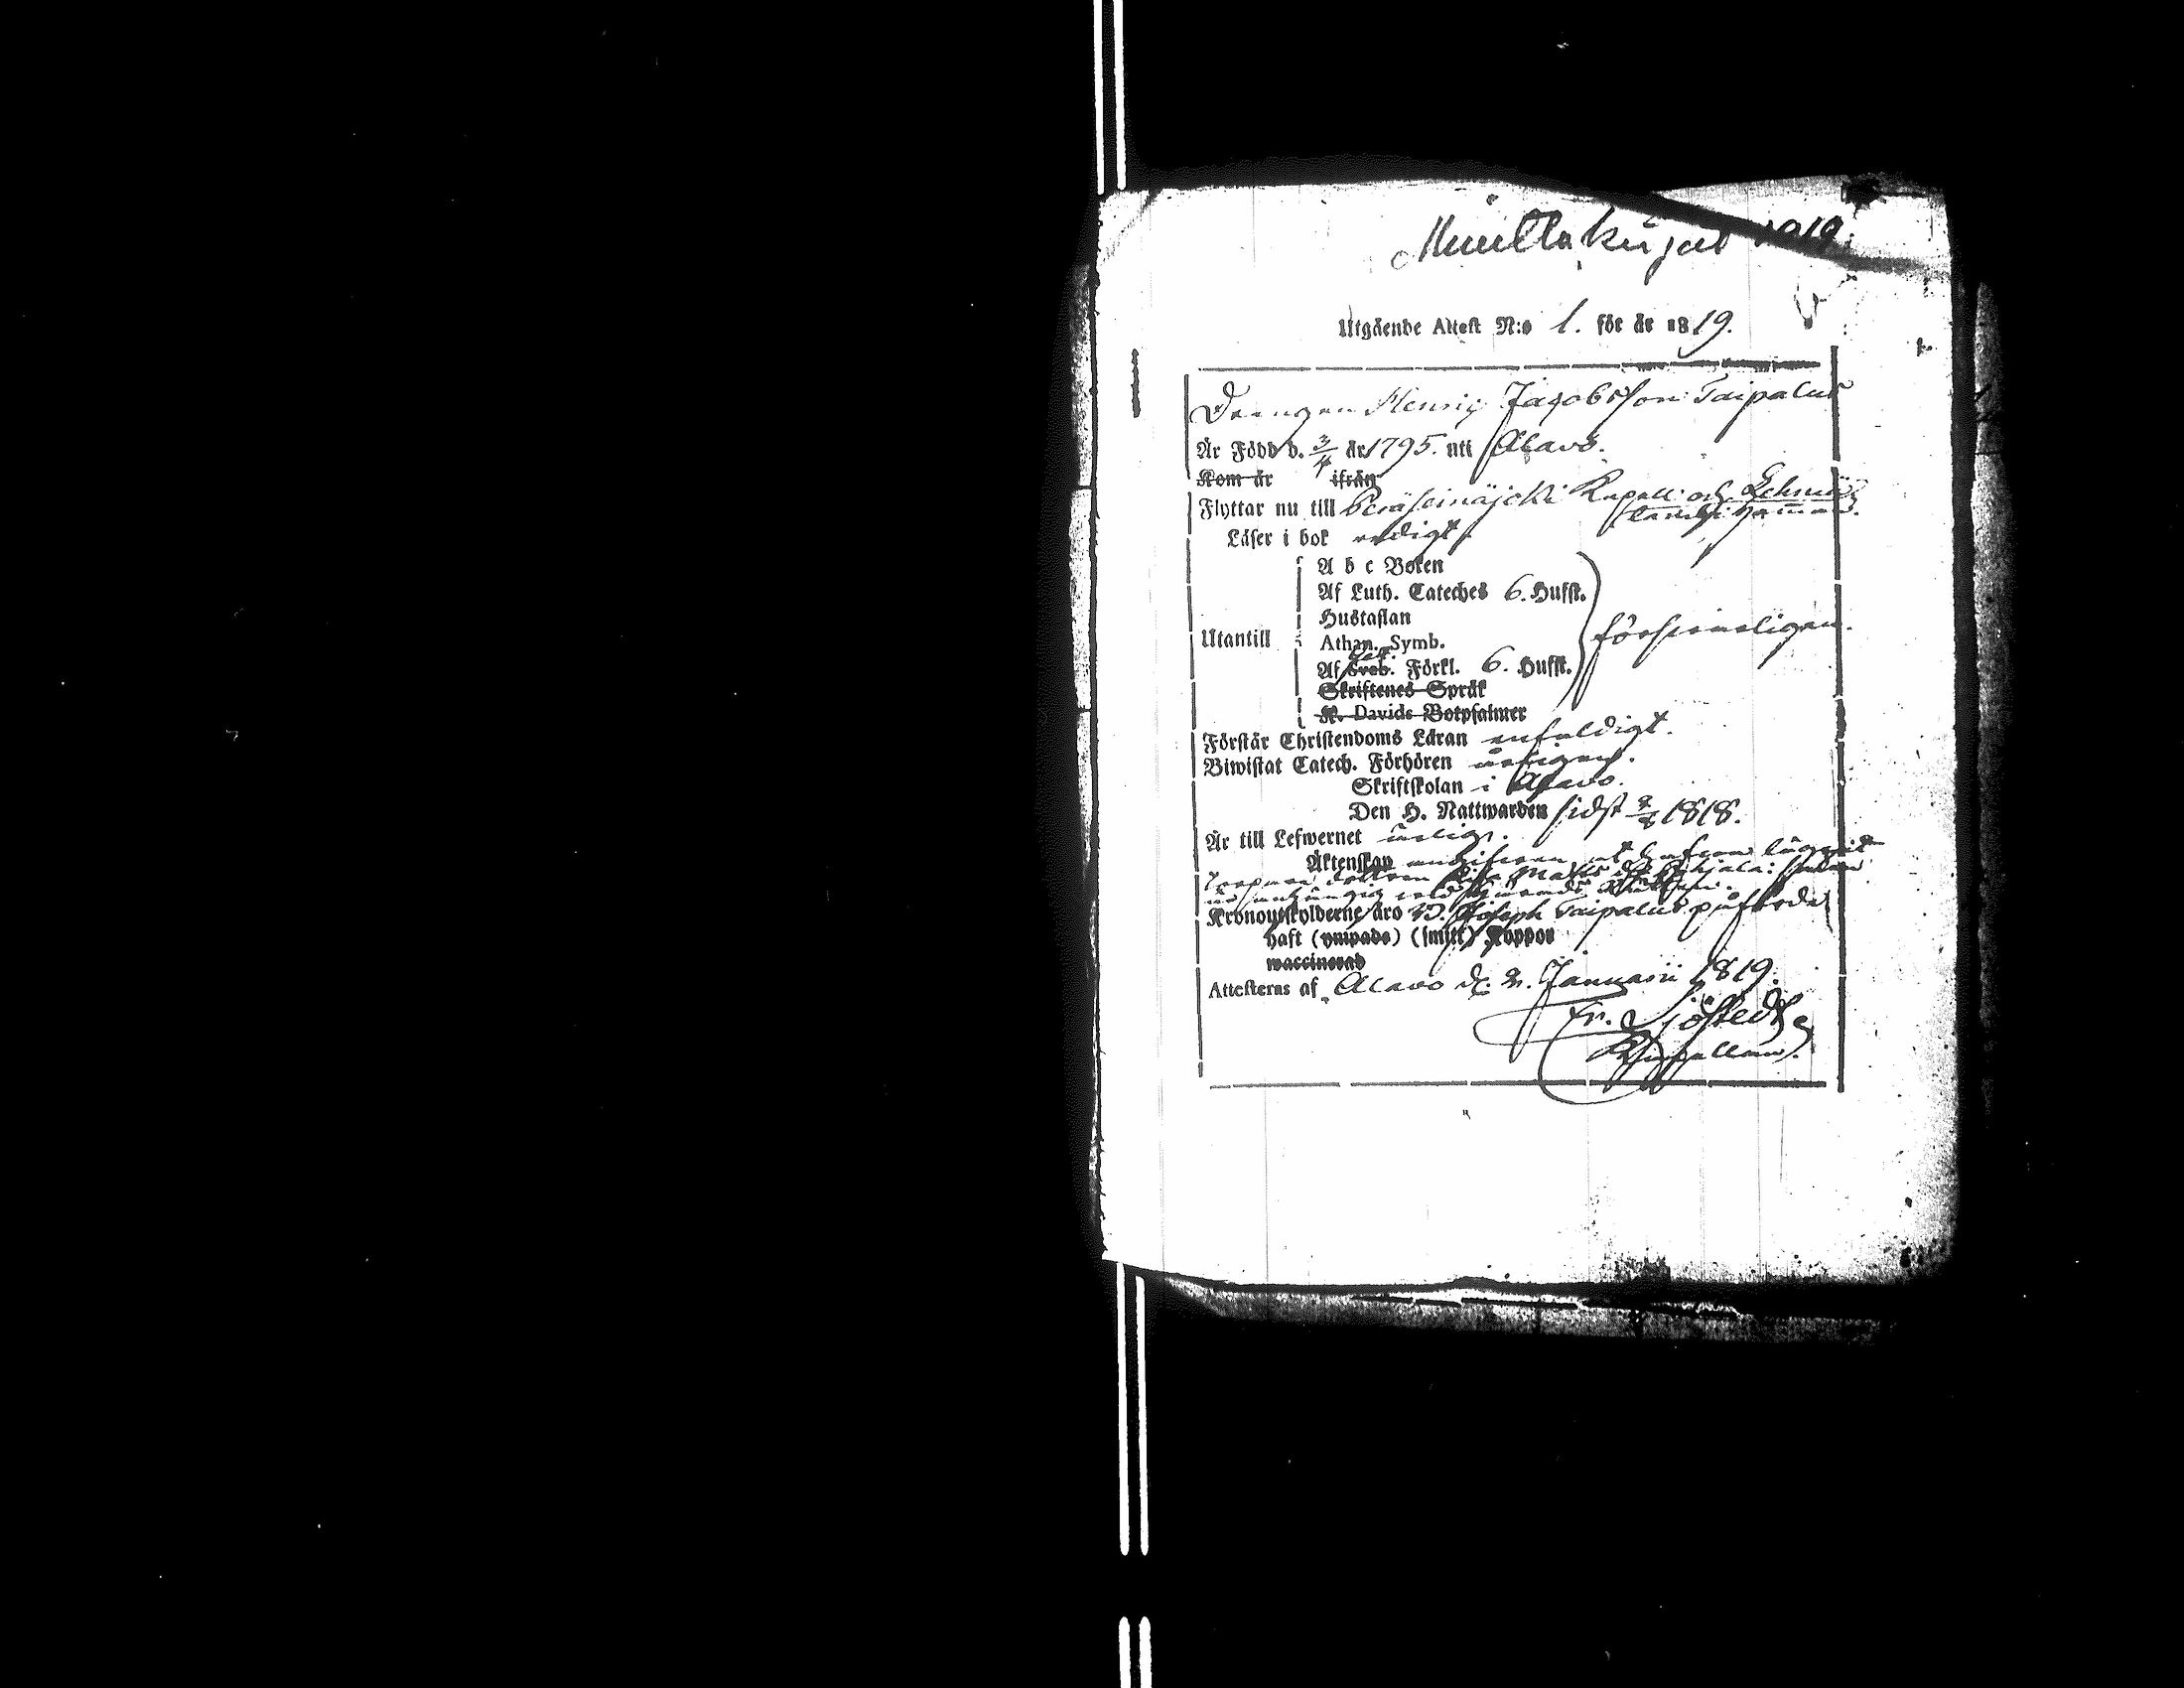 Muuttokirjat 1819.
Utgående Attest N:o 1. för år 1819.
Drengen Henric Jacobsson Taipalus
Är Född d. 3/4 år 1795. uti Alavo.
Kom år ifrån
Flyttar nu till Peräseinäjoki Kapell och
Läser i bok redigt.
A b c Boken
Af Luth. Cateches 6. Hufst.
Hustaflan
Utantill
Athan. Symb.
Af Sveb. Förkl. 6. Hufst.
försvarligen.
Skriftenes Språk
K. Davids Botpsalmer
Förstår Christendoms Läran enfaldigt.
Biwistat Catech. Förhören
Skriftskolan i Alavo.
Den H. Nattwarden sidst 1818.
Är till Lefwernet ärlig.
Äktenskap
Kronoutskylderne äro Joseph Taipalus påförde
haft (ympade) (smitt) Koppor
waccinerad
Attesteras af Alavo d. 2. Januarii 1819.
Fr. Sjöstedt
Kapellan.